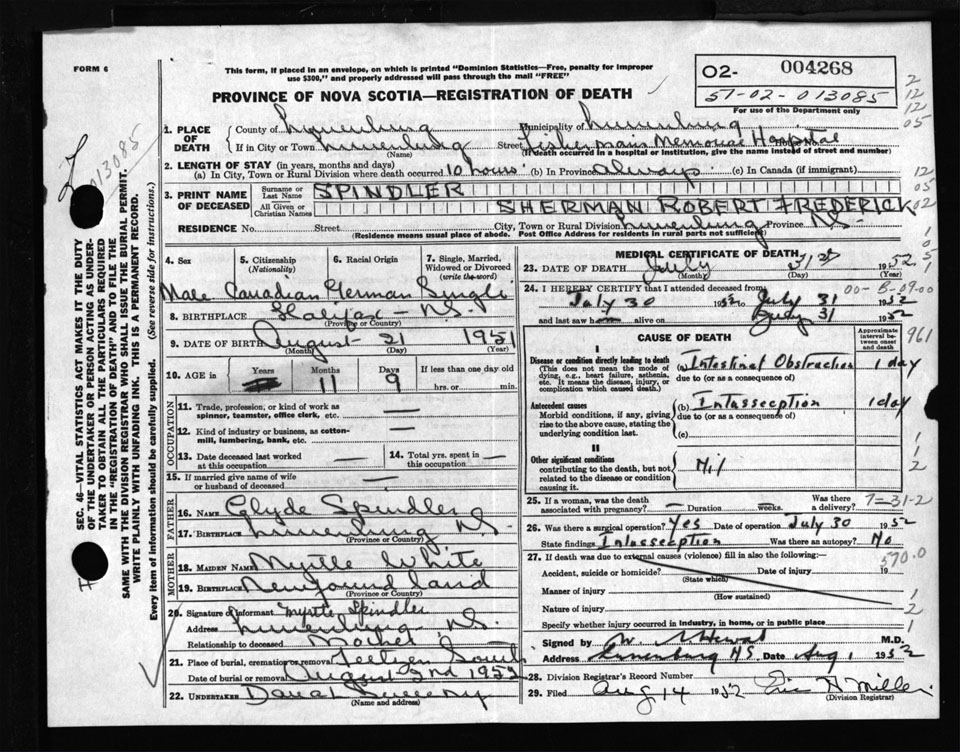 FORM 6
This form, if placed in an envelope, on which is printed "Dominion Statistics—Free, penalty for improper
use $300," and properly addressed will pass through the mail "FREE"
O2- 004268
51-02-013085
For use of the Department only
PROVINCE OF NOVA SCOTIA—REGISTRATION OF DEATH
2
12
12
05
1. PLACE OF DEATH
County of Lunenburg Municipality of Lunenburg
If in City or Town Lunenburg Street Fishermans Memorial Hospital House No.
(Name) (If death occurred in a hospital or institution, give the name instead of street and number)
2. LENGTH OF STAY (in years, months and days)
(a) In City, Town or Rural Division where death occurred 10 hours (b) In Province Always (c) In Canada (if immigrant)
3. PRINT NAME OF DECEASED
Surname or Last Name SPINDLER
All Given or Christian Names SHERMAN ROBERT FREDERICK
12
05
02
RESIDENCE No. Street City, Town or Rural Division Lunenburg Province NS
(Residence means usual place of abode. Post Office Address for residents in rural parts not sufficient)
4. Sex
5. Citizenship (Nationality)
6. Racial Origin
7. Single, Married, Widowed or Divorced (write the word)
Male Canadian German Single
8. BIRTHPLACE Halifax - N.S.
(Province or Country)
9. DATE OF BIRTH August 21 1951
(Month) (Day) (Year)
10. AGE in Years Months Days If less than one day old
11 9 hrs. or min.
OCCUPATION
11. Trade, profession, or kind of work as spinner, teamster, office clerk, etc. —
12. Kind of industry or business, as cotton-mill, lumbering, bank, etc. —
13. Date deceased last worked at this occupation —
14. Total yrs. spent in this occupation —
15. If married give name of wife or husband of deceased —
FATHER
16. NAME Clyde Spindler
17. BIRTHPLACE Lunenburg NS
(Province or Country)
MOTHER
18. MAIDEN NAME Myrtle White
19. BIRTHPLACE Newfoundland
(Province or Country)
20. Signature of informant Myrtle Spindler
Address Lunenburg NS.
Relationship to deceased Mother
21. Place of burial, cremation or removal South
Date of burial or removal August 2nd 1952
22. UNDERTAKER
(Name and address)
MEDICAL CERTIFICATE OF DEATH
23. DATE OF DEATH July 31 1952
(Month) (Day) (Year)
24. I HEREBY CERTIFY that I attended deceased from
July 30 1952 to July 31 1952
and last saw h alive on July 31 1952
CAUSE OF DEATH
Approximate interval between onset and death
961
I
Disease or condition directly leading to death
(This does not mean the mode of dying, e.g., heart failure, asthenia, etc. It means the disease, injury, or complication which caused death.)
(a) Intestinal Obstruction 1 day
due to (or as a consequence of)
Antecedent causes
Morbid conditions, if any, giving rise to the above cause, stating the underlying condition last.
(b) Intasseception 1 day
due to (or as a consequence of)
(c)
II
Other significant conditions contributing to the death, but not related to the disease or condition causing it.
Nil
25. If a woman, was the death associated with pregnancy? — Duration weeks. Was there a delivery?
7-31-2
26. Was there a surgical operation? Yes Date of operation July 30 1952
State findings Intasseception Was there an autopsy? No
570.0
27. If death was due to external causes (violence) fill in also the following:—
Accident, suicide or homicide? Date of injury 19
(State which)
Manner of injury
(How sustained)
Nature of injury
Specify whether injury occurred in industry, in home, or in public place
Signed by M.D.
Address Lunenburg NS Date Aug 1 1952
28. Division Registrar's Record Number
29. Filed Aug 14 1952 Eric H Miller
(Division Registrar)
013085
SEC. 46—VITAL STATISTICS ACT MAKES IT THE DUTY
OF THE UNDERTAKER OR PERSON ACTING AS UNDER-
TAKER TO OBTAIN ALL THE PARTICULARS REQUIRED
IN THE "REGISTRATION OF DEATH" AND TO FILE THE
SAME WITH THE DIVISION REGISTRAR WHO SHALL ISSUE THE BURIAL PERMIT.
WRITE PLAINLY WITH UNFADING INK. THIS IS A PERMANENT RECORD.
Every item of information should be carefully supplied. (See reverse side for instructions.)